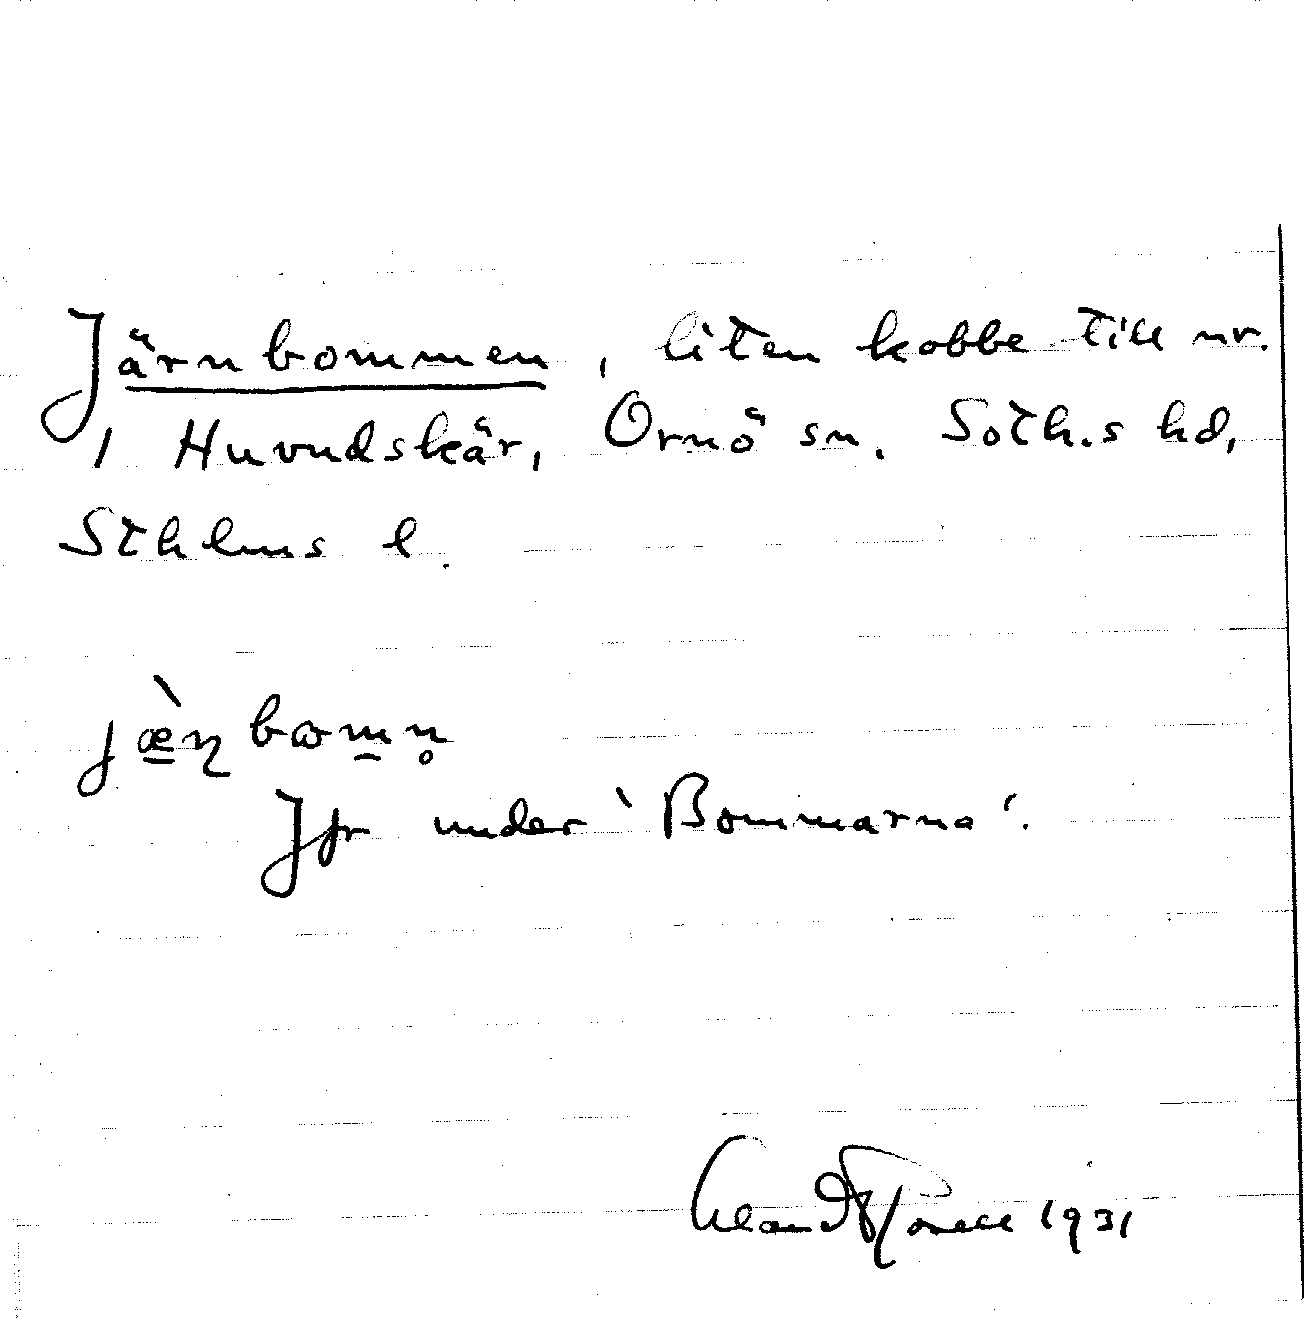 Järnbommen, liten kobbe till nr.
1 Huvudskär, Ornö sn. Soth.s hd,
Sthlms l.
jæ̀ɳbɷmn̥
Jfr under 'Bommarna'.
1931